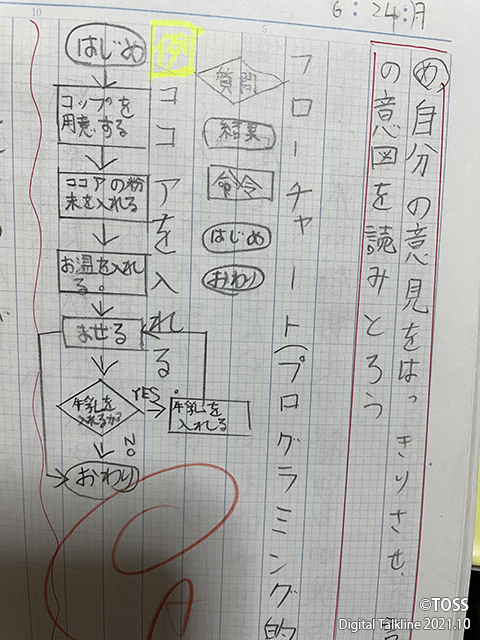 6:24:月
め、自分の意見をはっきりさせ、
の意図を読みとろう
フローチャート(プログラミング的
質問
結果
命令
はじめ
おわり
例
ココアを入れる。
はじめ
コップを
用意する
ココアの粉
末を入れる
お温を入れ
る。
まぜる
牛乳を
入れるか?
YES
牛乳を
入れる
NO
おわり
©TOSS
Digital Talkline 2021.10